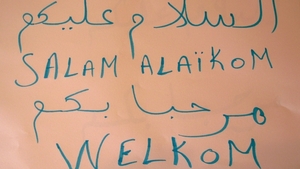 السلام عليكم
SALAM ALAÏKOM
مرحبا بكم
WELKOM